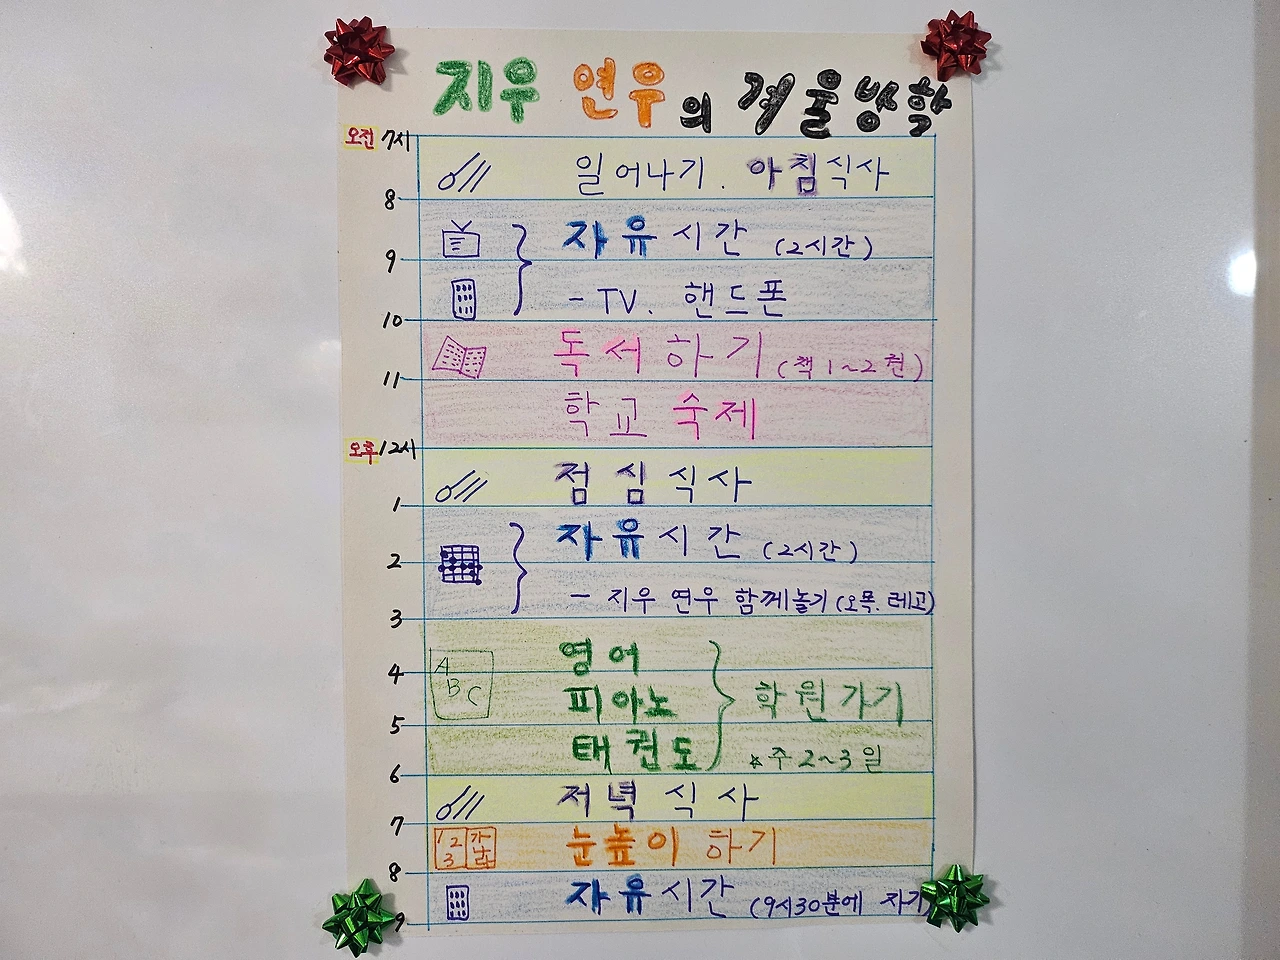 지우 연우의 겨울방학
오전 7시
일어나기. 아침식사
8
자유시간 (2시간)
9
- TV. 핸드폰
10
독서하기 (책 1~2권)
11
학교 숙제
오후 12시
점심식사
1
자유시간 (2시간)
2
- 지우 연우 함께놀기 (오목. 레고)
3
영어
A B C
4
피아노
학원가기
5
태권도
*주 2~3일
6
저녁식사
7
1 2 3
눈높이 하기
8
자유시간 (9시30분에 자기)
9